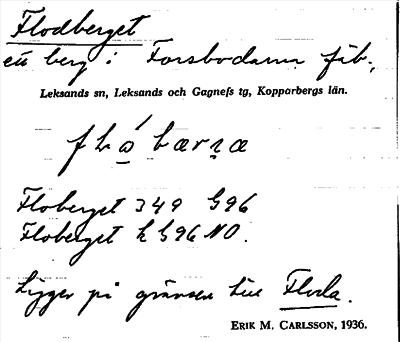 Flodberget
ett berg i Forsbodarna fäb.,
Leksands sn, Leksands och Gagnefs tg, Kopparbergs län.
Floberget 349 G96
Floberget k G96 NO.
Ligger på gränsen till Floda.
ERIK M. CARLSSON, 1936.